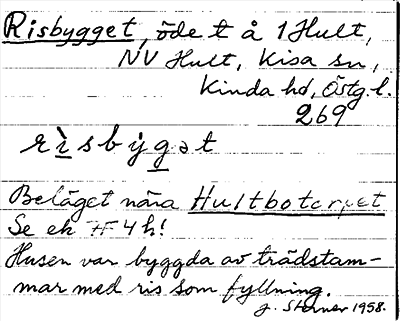 Risbygget, öde t å 1 Hult,
NV Hult, Kisa sn,
Kinda hd, Östg.l.
269
rìsbỳgət
Beläget nära Hultbotorpet
Se ek 7F4h!
Husen var byggda av trädstam-
mar med ris som fyllning.
J. Sterner 1958.